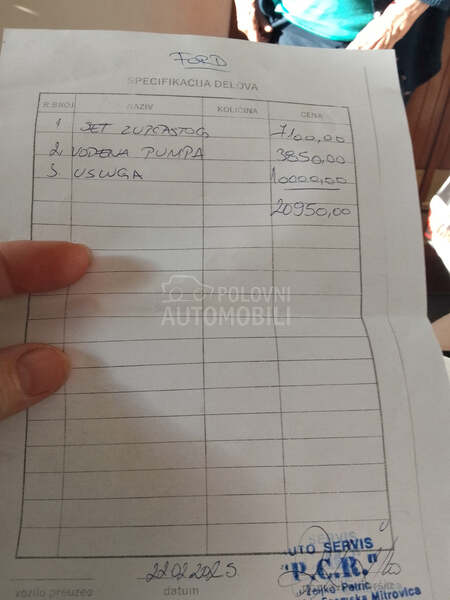 FORD
SPECIFIKACIJA DELOVA
R.BROJ NAZIV KOLIČINA CENA
1. SET ZUPČASTOG 7100,00
2. VODENA PUMPA 3850,00
3. USLUGA 10000,00
20950,00
POLOVNI
AUTOMOBILI
SERVIS
AUTO SERVIS
"P.C.R."
Željko Petrić
Sremska Mitrovica
22.02.2025.
vozilo preuzeo datum